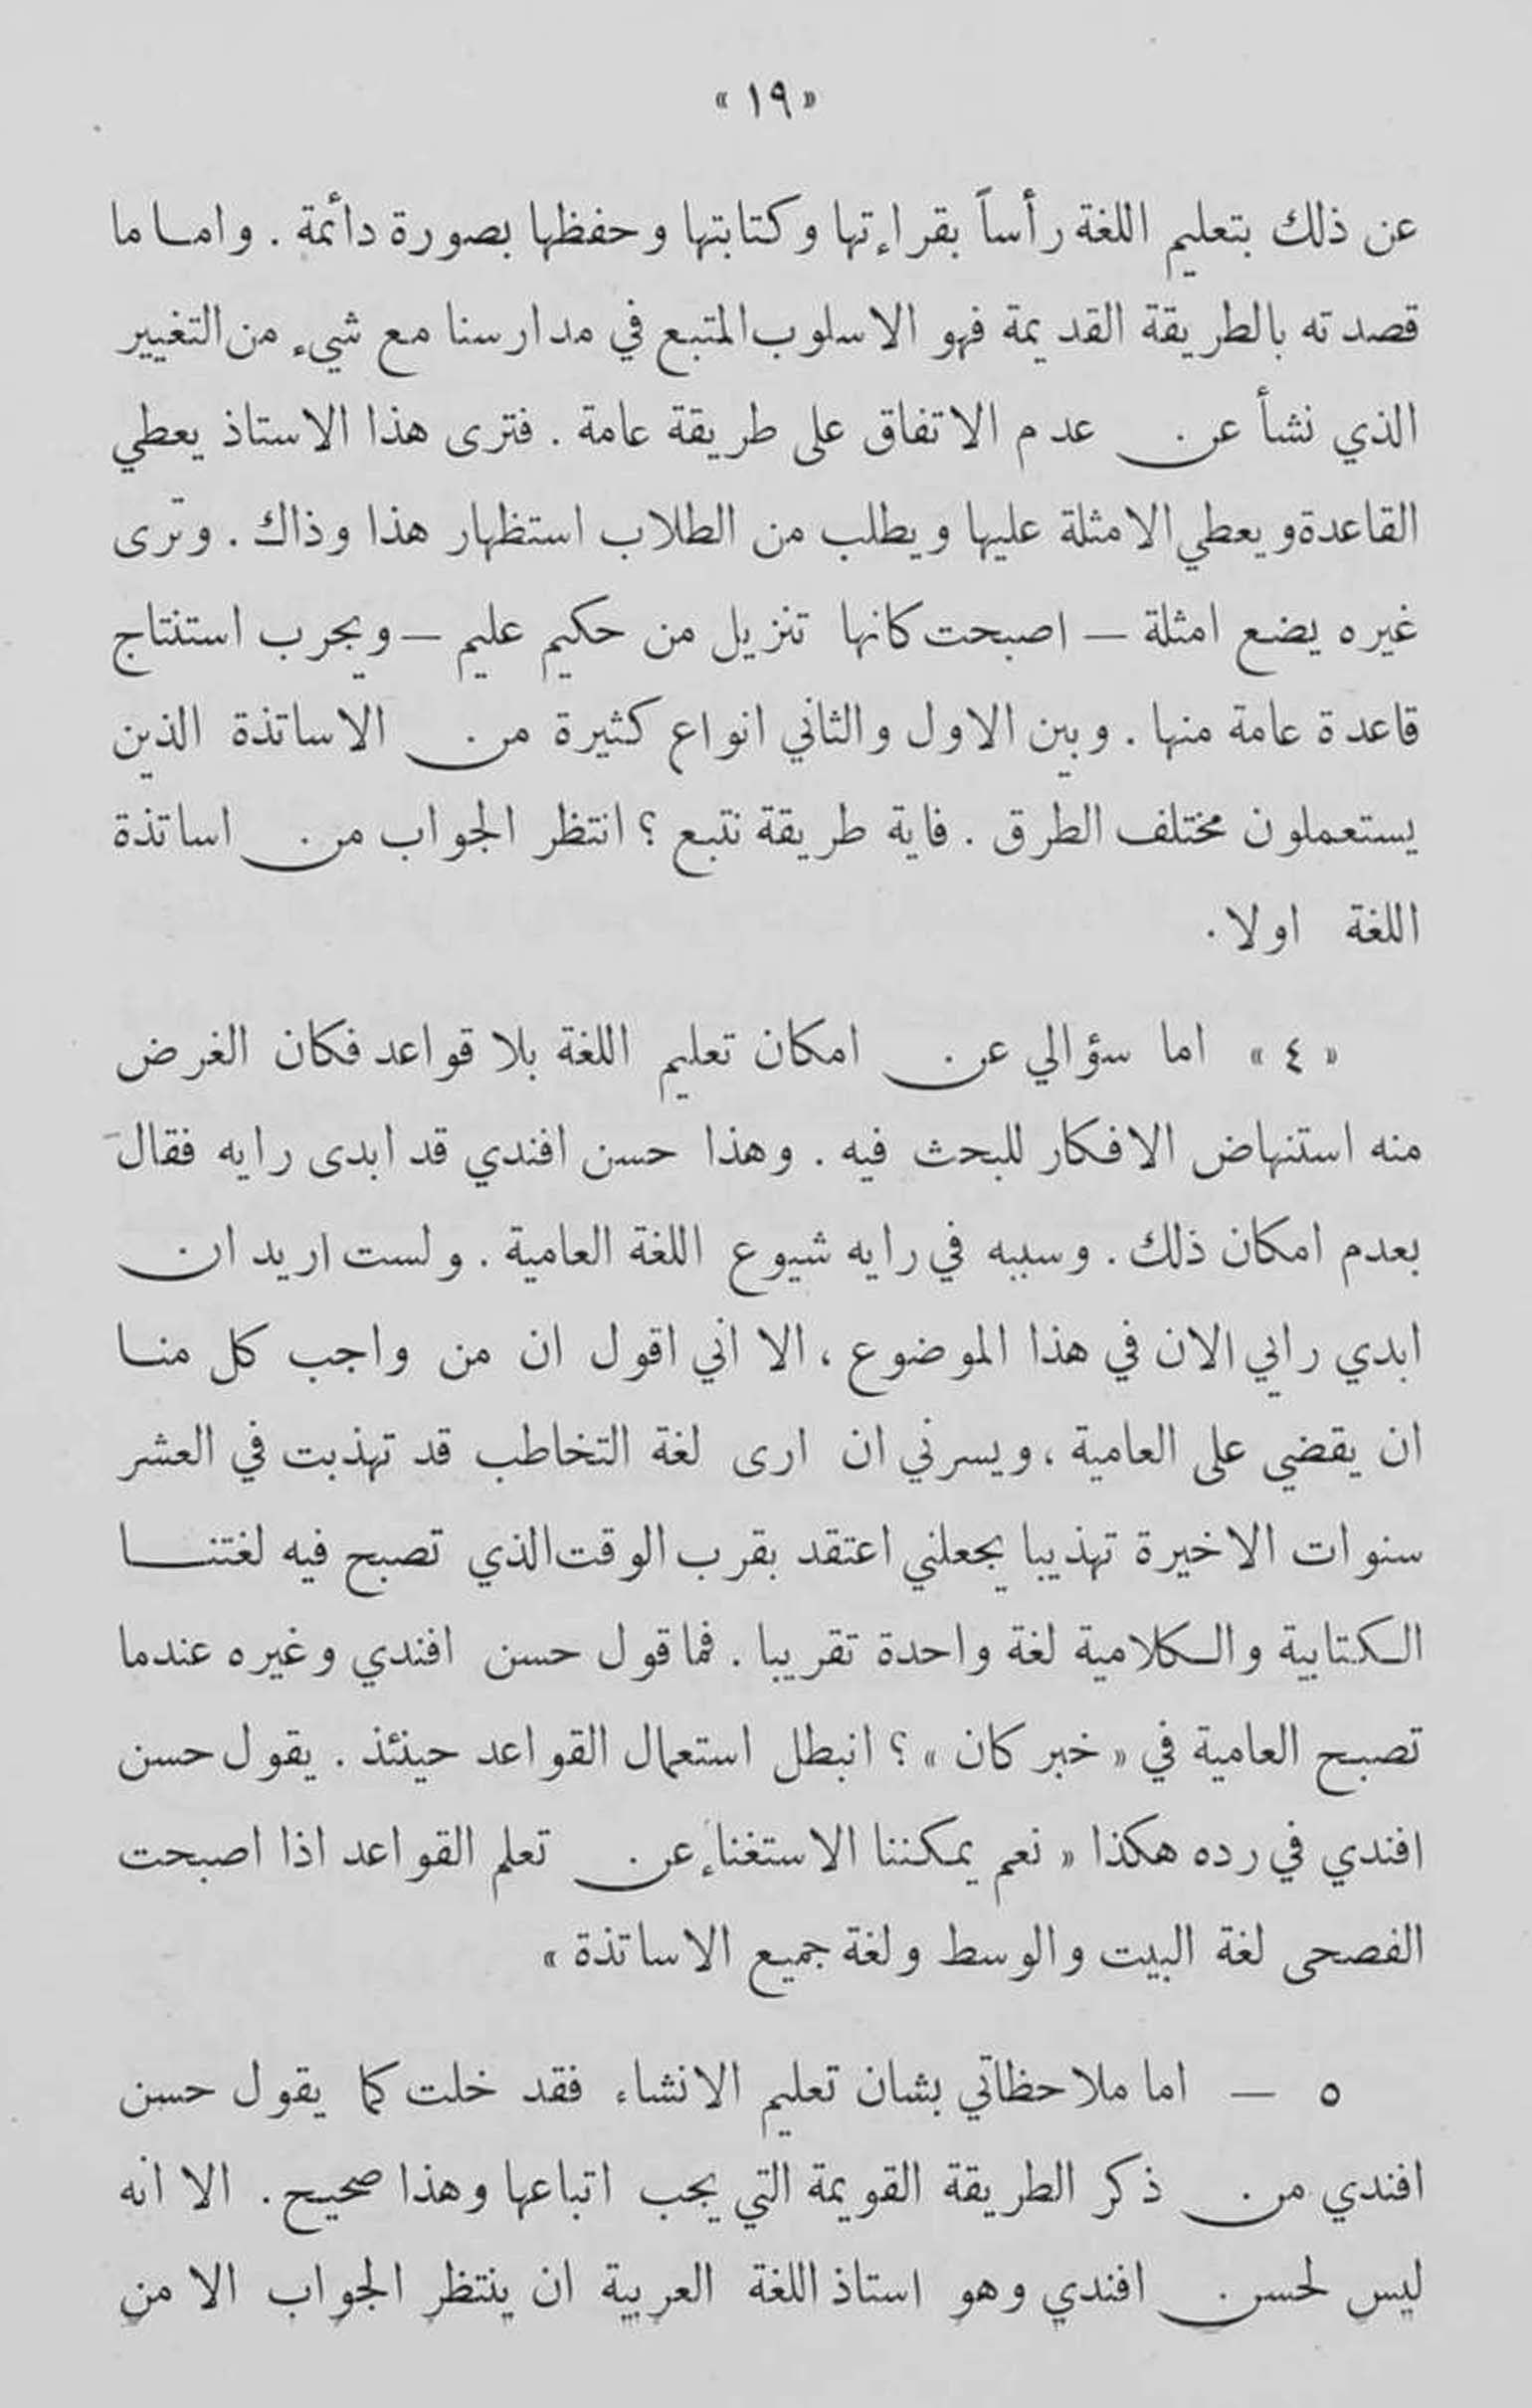 « ١٩ »
عن ذلك بتعليم اللغة رأساً بقراءتها وكتابتها وحفظها بصورة دائمة . واما ما
قصدته بالطريقة القديمة فهو الاسلوب المتبع في مدارسنا مع شيء من التغيير
الذي نشأ عن عدم الاتفاق على طريقة عامة . فترى هذا الاستاذ يعطي
القاعدة ويعطي الامثلة عليها ويطلب من الطلاب استظهار هذا وذاك . وترى
غيره يضع امثلة – اصبحت كانها تنزيل من حكيم عليم – ويجرب استنتاج
قاعدة عامة منها . وبين الاول والثاني انواع كثيرة من الاساتذة الذين
يستعملون مختلف الطرق . فاية طريقة نتبع ؟ انتظر الجواب من اساتذة
اللغة اولا .
« ٤ » اما سؤالي عن امكان تعليم اللغة بلا قواعد فكان الغرض
منه استنهاض الافكار للبحث فيه . وهذا حسن افندي قد ابدى رايه فقال
بعدم امكان ذلك . وسببه في رايه شيوع اللغة العامية . ولست اريد ان
ابدي رايي الان في هذا الموضوع ، الا اني اقول ان من واجب كل منا
ان يقضي على العامية ، ويسرني ان ارى لغة التخاطب قد تهذبت في العشر
سنوات الاخيرة تهذيبا يجعلني اعتقد بقرب الوقت الذي تصبح فيه لغتنا
الكتابية والكلامية لغة واحدة تقريبا . فما قول حسن افندي وغيره عندما
تصبح العامية في « خبر كان » ؟ انبطل استعمال القواعد حينئذ . يقول حسن
افندي في رده هكذا « نعم يمكننا الاستغناء عن تعلم القواعد اذا اصبحت
الفصحى لغة البيت والوسط ولغة جميع الاساتذة »
٥ – اما ملاحظاتي بشان تعليم الانشاء فقد خلت كما يقول حسن
افندي من ذكر الطريقة القويمة التي يجب اتباعها وهذا صحيح . الا انه
ليس لحسن افندي وهو استاذ اللغة العربية ان ينتظر الجواب الا من